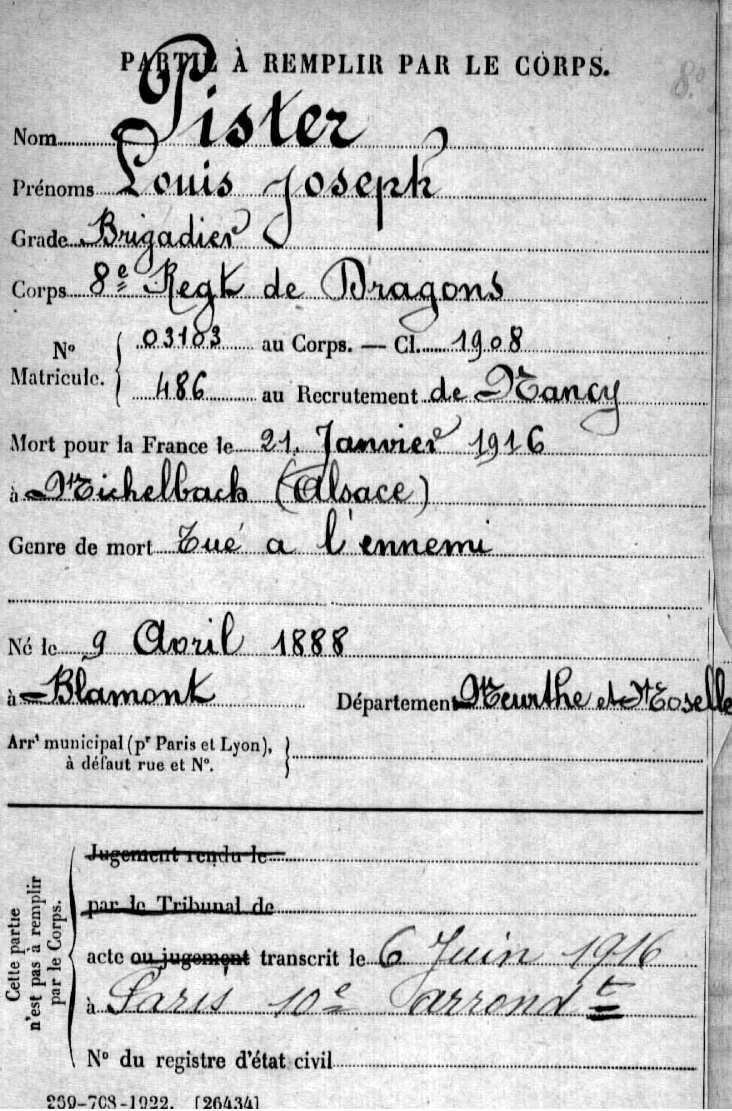 PARTIE À REMPLIR PAR LE CORPS.
8.º
Nom Pister
Prénoms Louis Joseph
Grade Brigadier
Corps 8e Regt de Dragons
No Matricule. { 03103 au Corps. — Cl. 1908
486 au Recrutement de Nancy
Mort pour la France le 21 Janvier 1916
à Michelbach (Alsace)
Genre de mort Tué a l'ennemi
Né le 9 Avril 1888
à Blamont Département Meurthe et Moselle
Arrt municipal (pr Paris et Lyon), }
à défaut rue et No.
Cette partie
n'est pas à remplir
par le Corps.
Jugement rendu le
par le Tribunal de
acte ou jugement transcrit le 6 Juin 1916
à Paris 10e arrondt
No du registre d'état civil
269-708-1922. [26434]